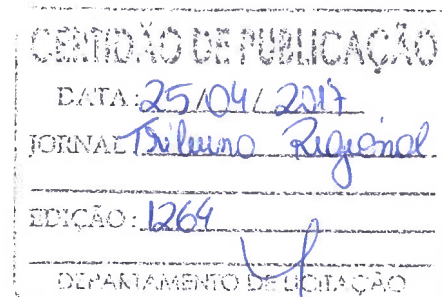 CERTIDÃO DE PUBLICAÇÃO
DATA: 25/04/2017
JORNAL Tribuna Regional
EDIÇÃO: 1264
DEPARTAMENTO DE LICITAÇÃO